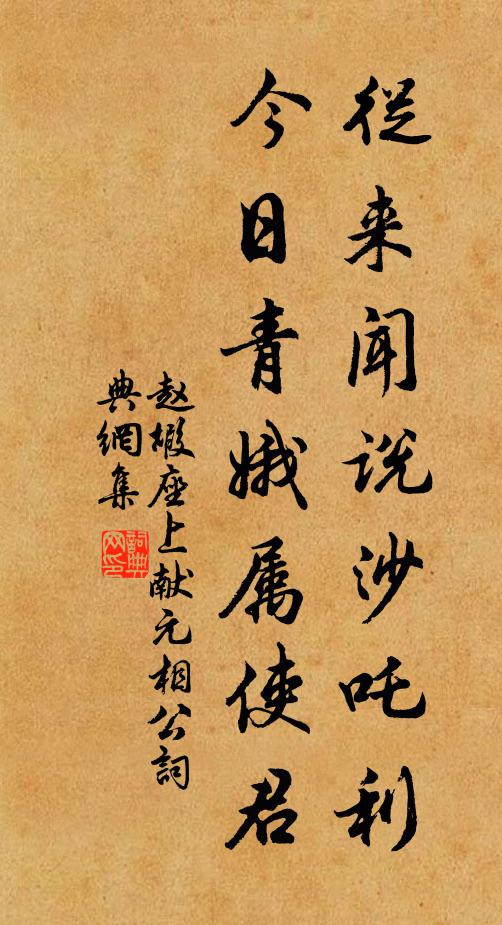 從来闻説沙吒利
今日青娥属使君
赵嘏座上献元相公詞
典網集
詞典网印